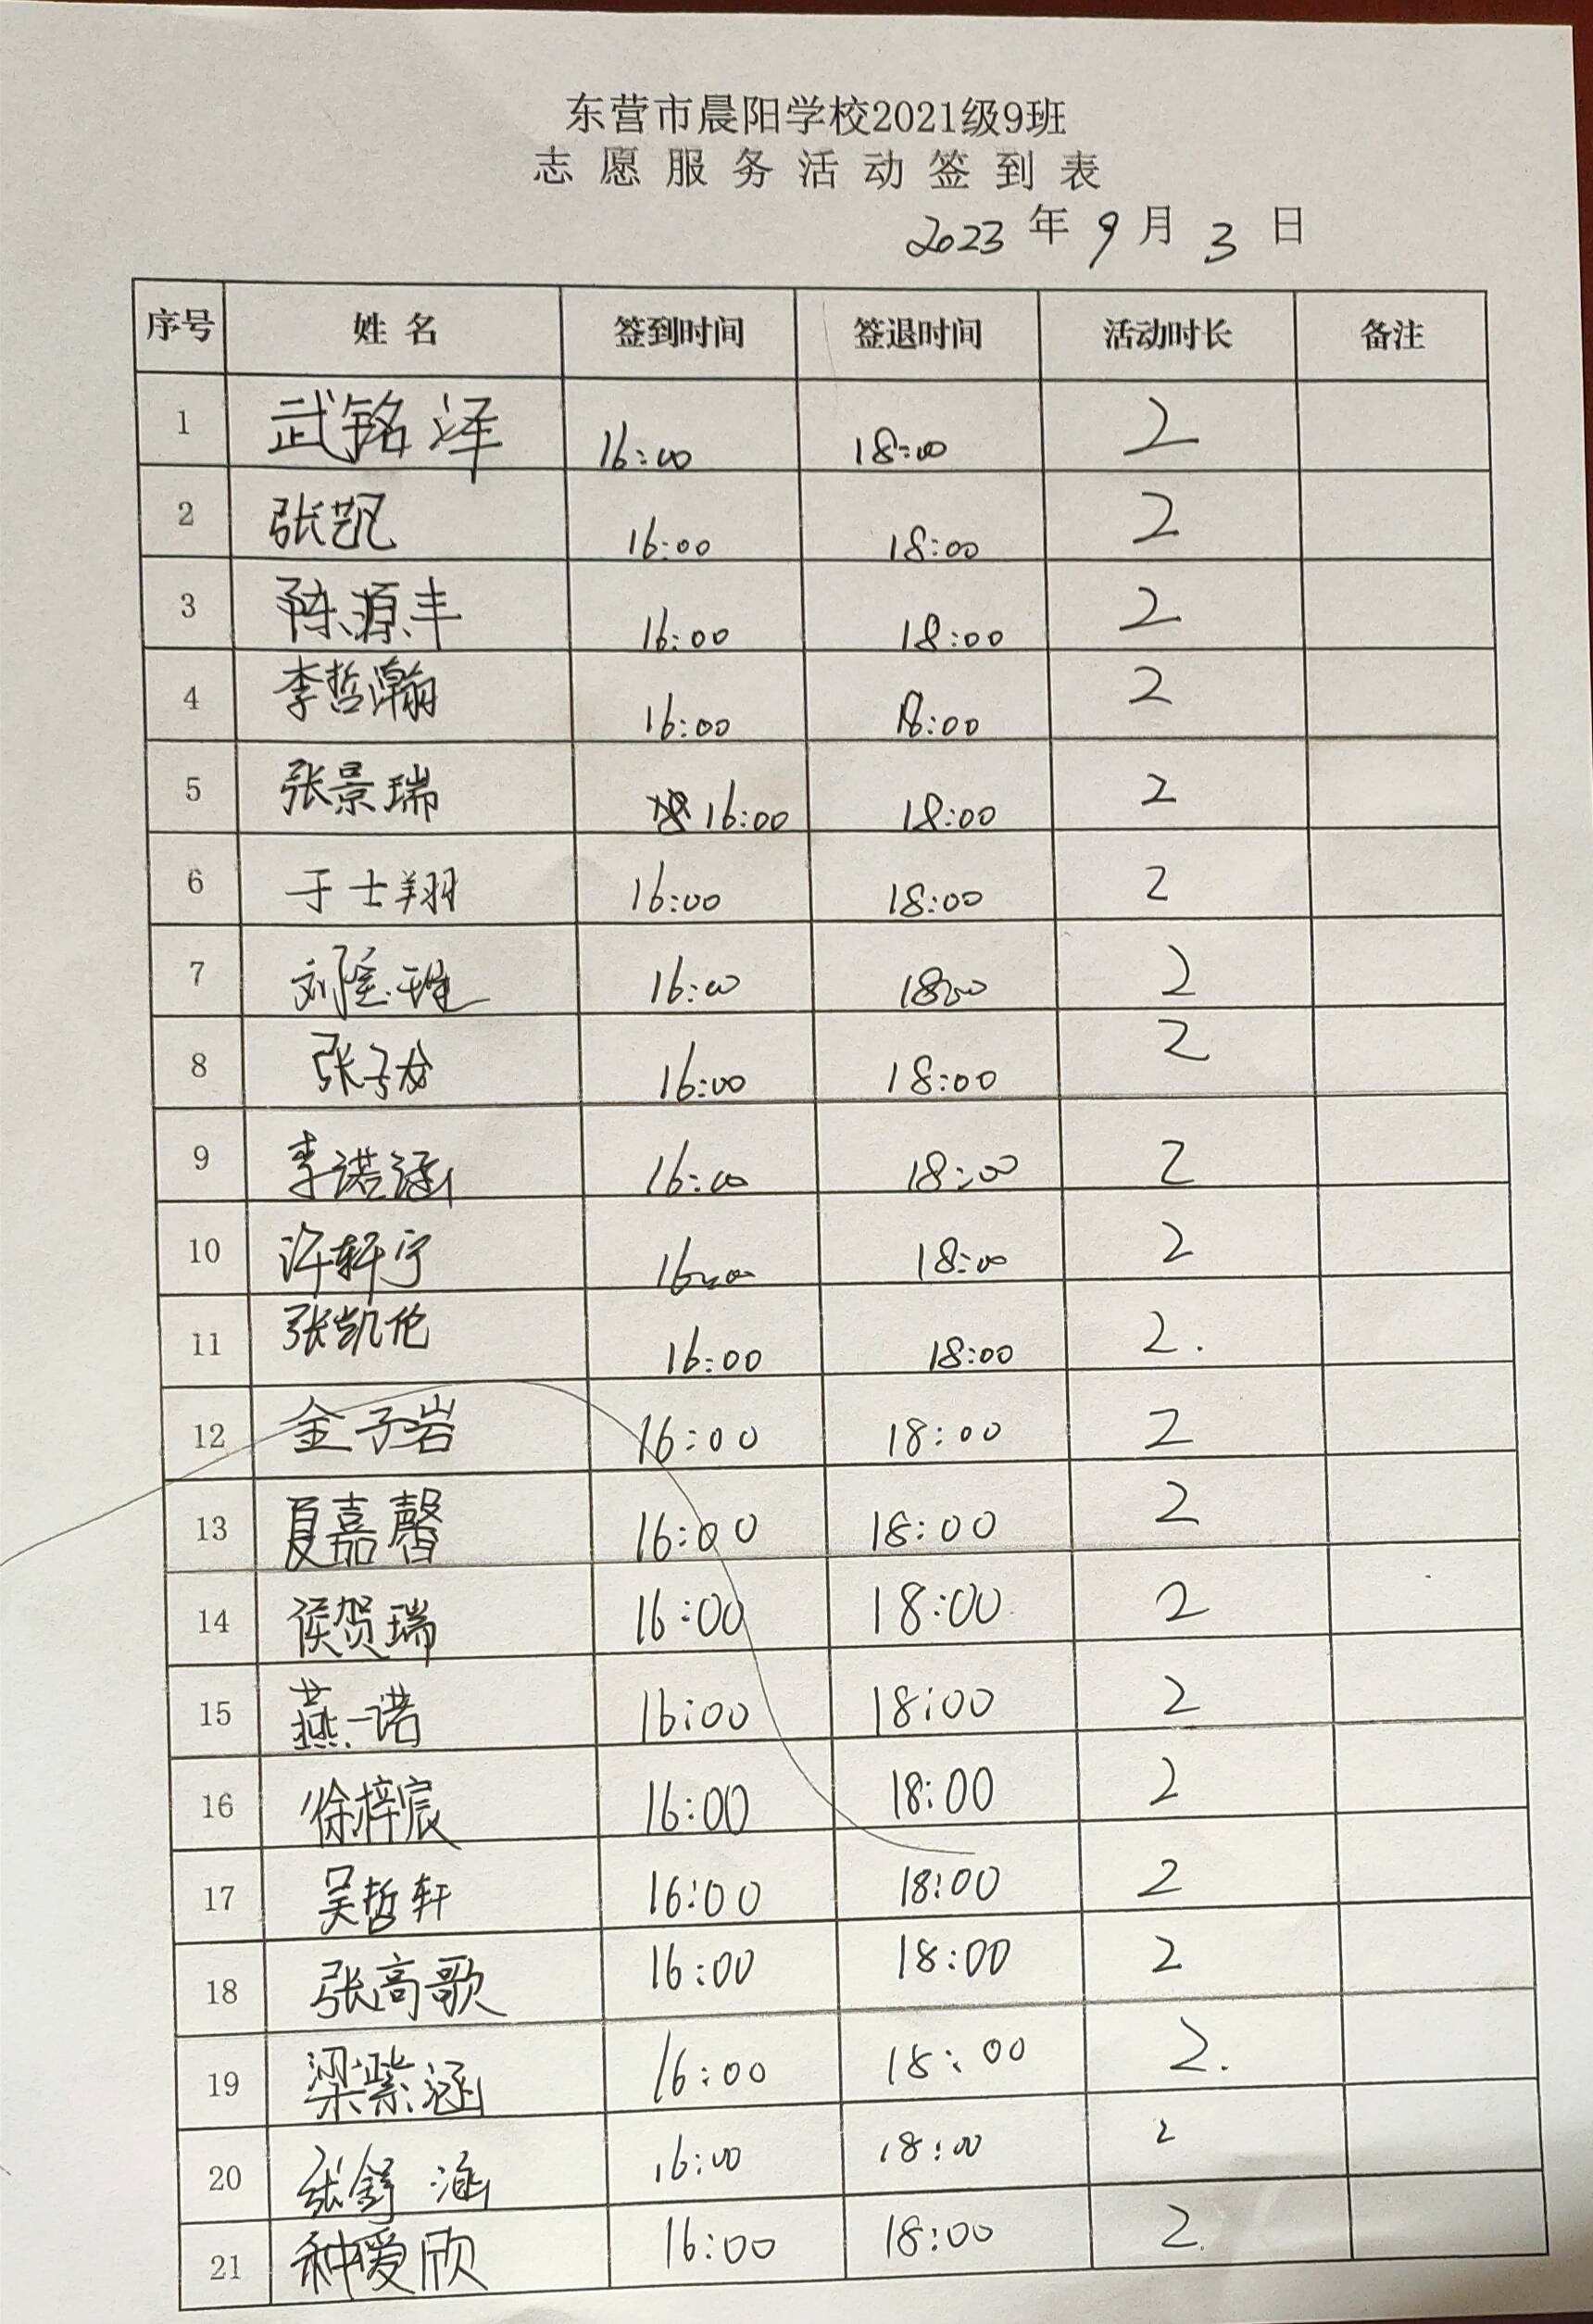 东营市晨阳学校2021级9班
志愿服务活动签到表
2023 年 9 月 3 日
序号 姓名 签到时间 签退时间 活动时长 备注
1 武铭泽 16:00 18:00 2
2 张凯 16:00 18:00 2
3 陈源丰 16:00 18:00 2
4 李哲瀚 16:00 18:00 2
5 张景瑞 16:00 18:00 2
6 于士翔 16:00 18:00 2
7 刘 16:00 18:00 2
8 张子 16:00 18:00 2
9 李诺涵 16:00 18:00 2
10 许轩宁 16:00 18:00 2
11 张凯伦 16:00 18:00 2.
12 金子岩 16:00 18:00 2
13 夏嘉馨 16:00 18:00 2
14 侯贺瑞 16:00 18:00 2
15 燕一诺 16:00 18:00 2
16 徐梓宸 16:00 18:00 2
17 吴哲轩 16:00 18:00 2
18 张高歌 16:00 18:00 2
19 梁紫涵 16:00 18:00 2.
20 张舒涵 16:00 18:00 2
21 种爱欣 16:00 18:00 2.